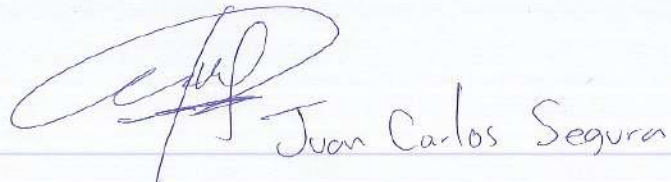 Juan Carlos Segura